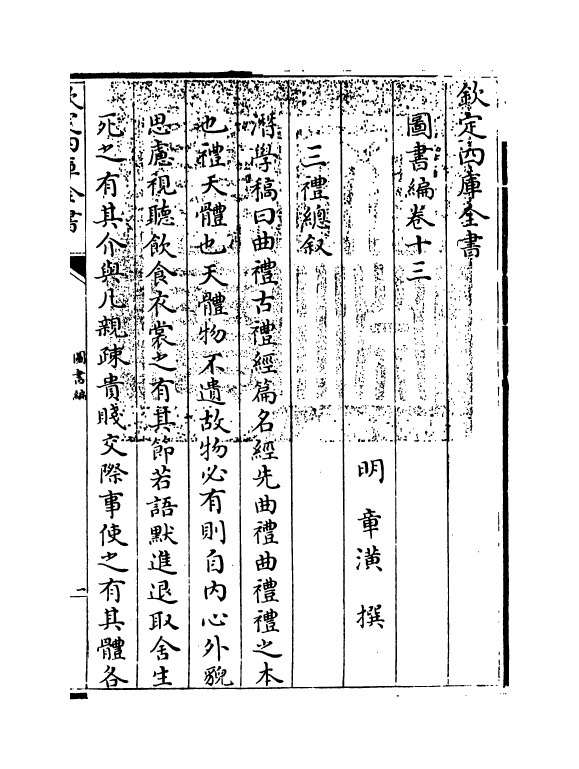 欽定四庫全書
圖書編卷十三
明 章潢 撰
三禮總叙
㴑學稿曰曲禮古禮經篇名經先曲禮曲禮禮之本
也禮天體也天體物不遺故物必有則自内心外貌
思慮視聽飲食衣裳之有其節若語默進退取舍生
死之有其介與凡親疎貴賤交際事使之有其體各
欽定四庫全書
圖書編
一